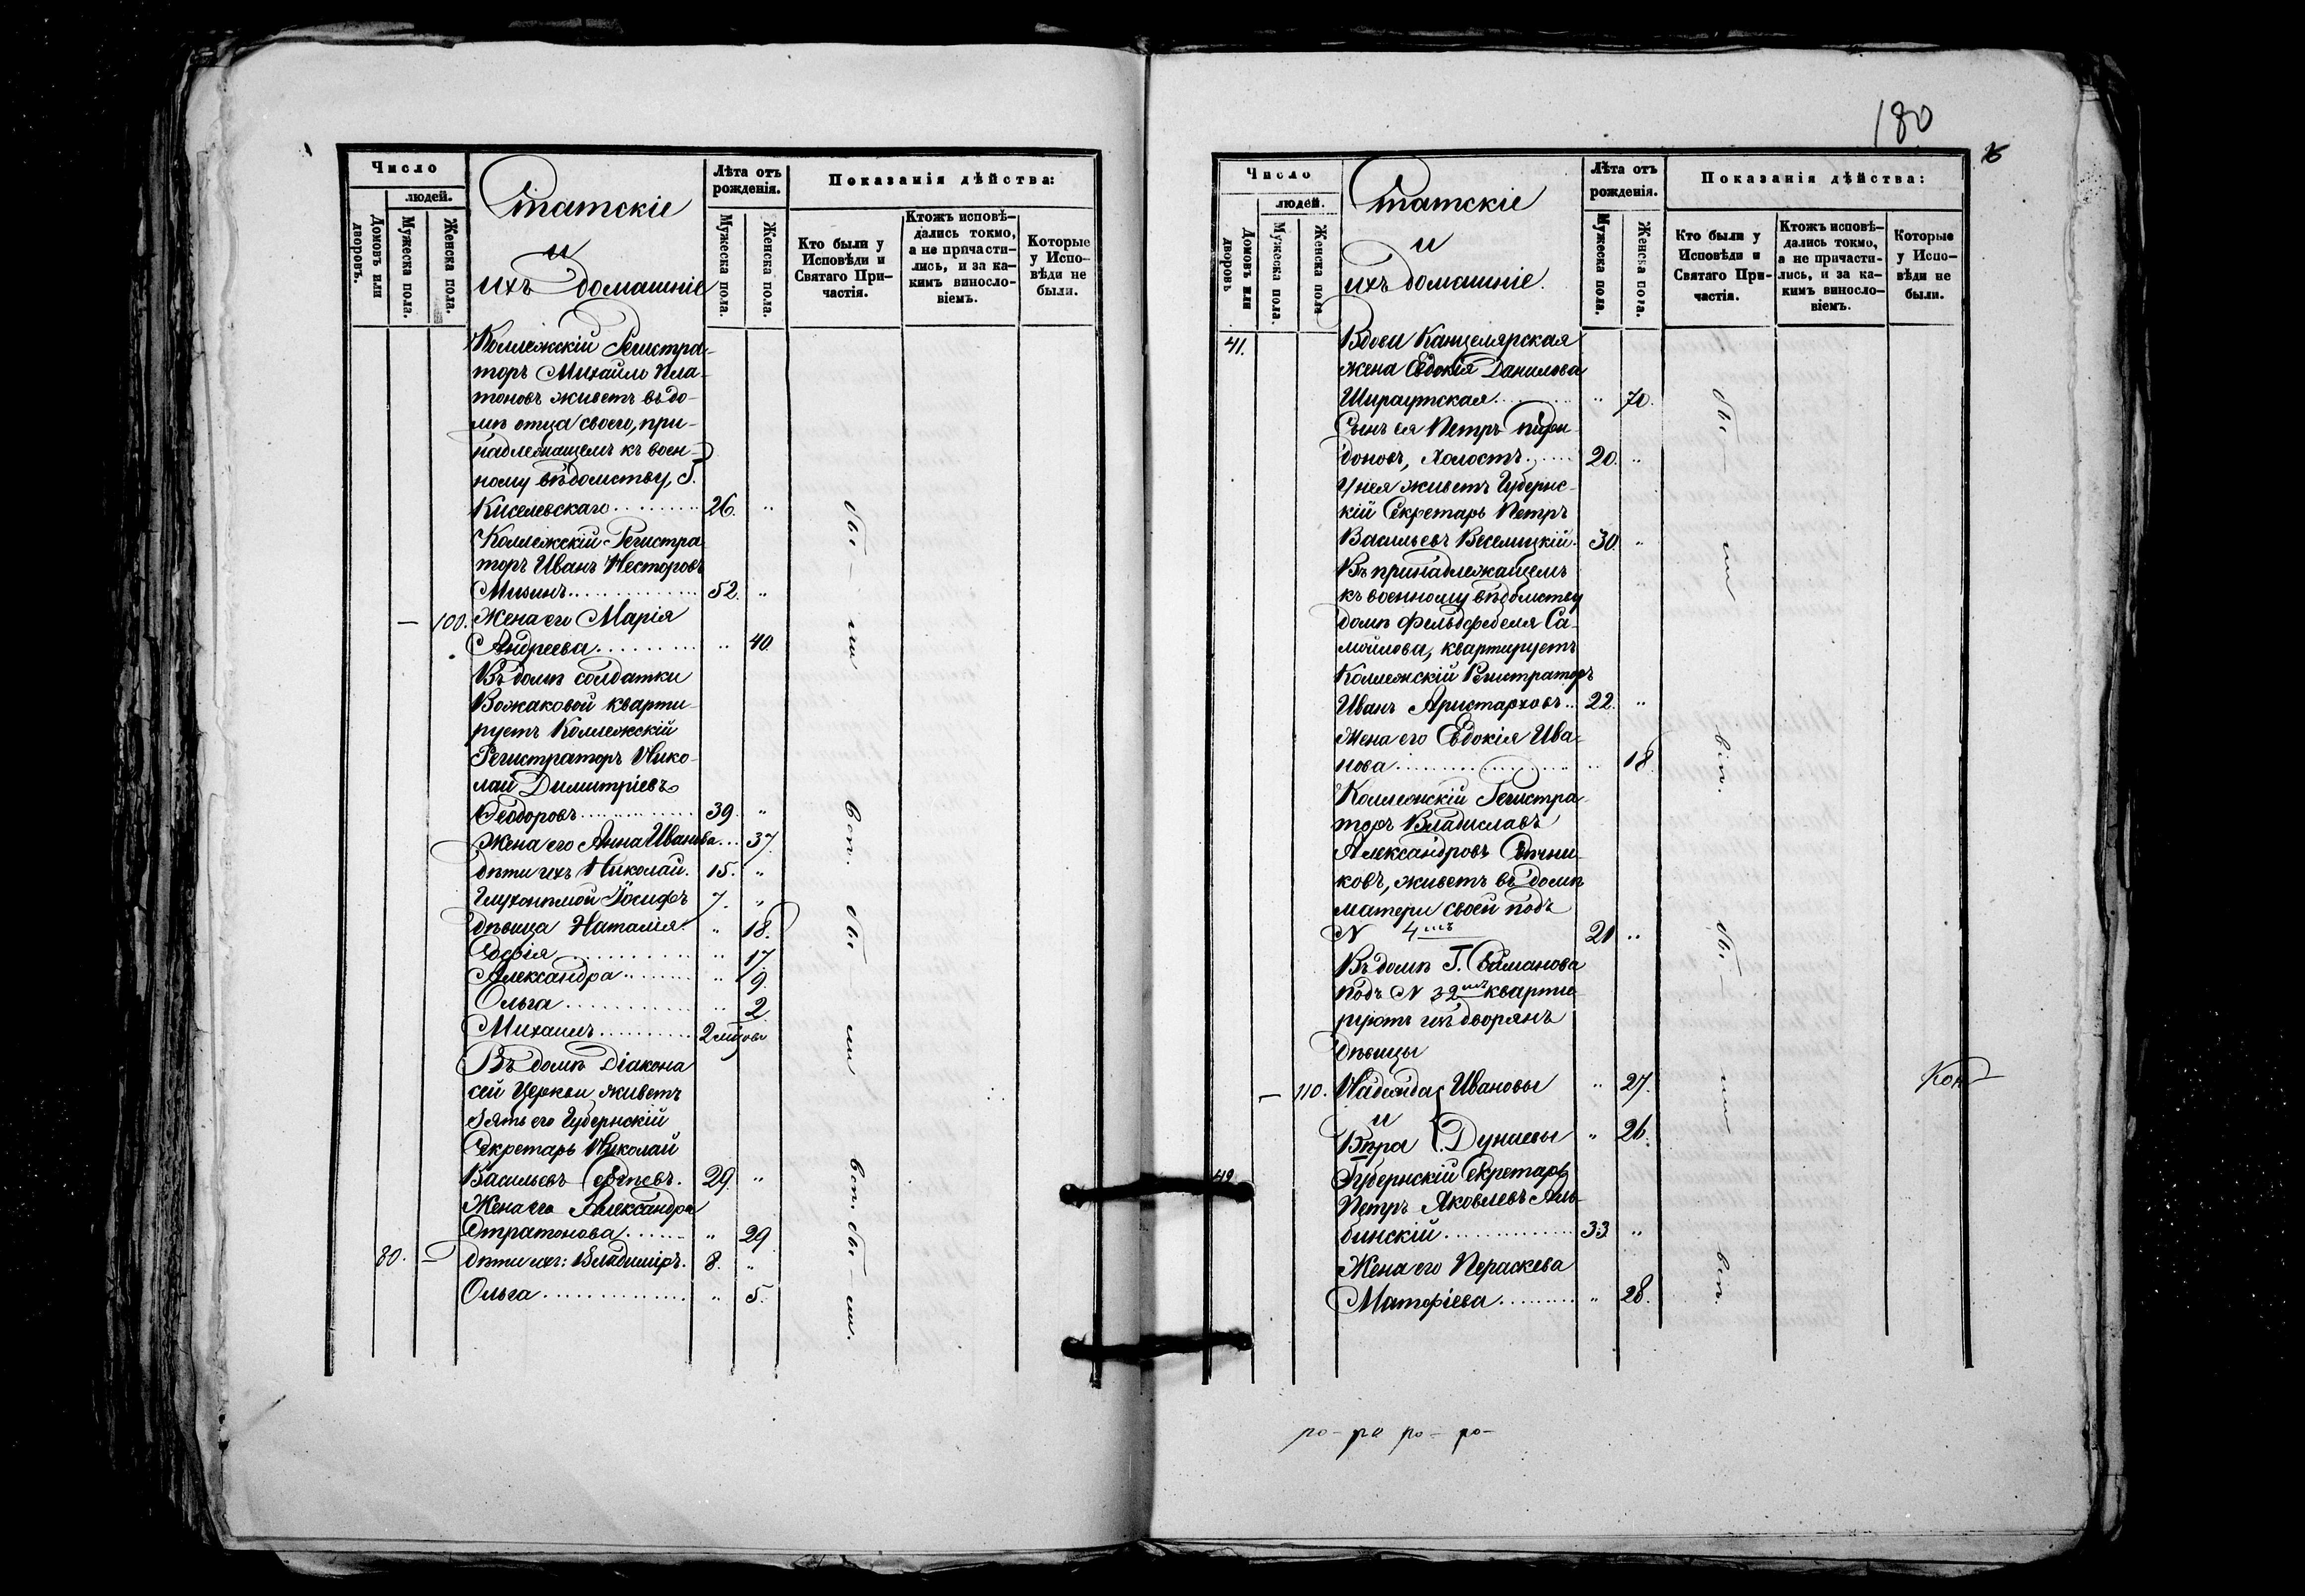 Число
людей.
Домовъ или дворовъ.
Мужеска пола.
Женска пола.
Статскіе
и
ихъ домашніе
Лѣта отъ рожденія.
Мужеска пола.
Женска пола.
Показанія дѣйства:
Кто были у Исповѣди и Святаго Причастія.
Ктожъ исповѣдались токмо, а не причастились, и за какимъ винословіемъ.
Которые у Исповѣди не были.
Коллежскій Регистра-
торъ Михаилъ Пла-
тоновъ живетъ въ до-
мѣ отца своего, при-
надлежащемъ къ воен-
ному вѣдомству, Г.
Киселевскаго 26. "
Коллежскій Регистра
торъ Иванъ Несторовъ
Мизинъ 52. "
— 100. Жена его Марія
Андреева " 40.
Въ домѣ солдатки
Вожаковой кварти-
руетъ Коллежскій
Регистраторъ Нико-
лай Димитріевъ
Ѳеодоровъ 39. "
Жена его Анна Иванова 37.
дѣти ихъ Николай. 15. "
Глухонѣмой Іосифъ 7. "
дѣвица Наталія. " 18.
Софія " 17
Александра " 9.
Ольга " 2
Михаилъ 2 мѣсяцовъ
Въ домѣ Діакона
сей Церкви живетъ
зять его Губернскій
Секретарь Николай
Васильевъ 29. "
Жена его Александра
Стратонова " 29
80. — дѣти ихъ: Владиміръ. 8. "
Ольга " 5.
180
Число
людей.
Домовъ или дворовъ
Мужеска пола.
Женска пола
Статскіе
и
ихъ домашніе.
Лѣта отъ рожденія.
Мужеска пола.
Женска пола.
Показанія дѣйства:
Кто были у Исповѣди и Святаго Причастія.
Ктожъ исповѣдались токмо, а не причастились, и за какимъ винословіемъ.
Которые у Исповѣди не были.
41. Вдова Канцелярская
жена Евдокія Данилова
" 70.
Сынъ ея Петръ
доновъ, холостъ 20. "
У нея живетъ Губернс-
кій Секретарь Петръ
Васильевъ Веселицкій. 30. "
Въ принадлежащемъ
къ военному вѣдомству
домѣ фельдфебеля Са-
мойлова, квартируетъ
Коллежскій Регистраторъ
Иванъ Аристарховъ 22. "
Жена его Евдокія Ива-
нова " 18.
Коллежскій Регистра-
торъ Владиславъ
Александровъ
ковъ, живетъ въ домѣ
матери своей подъ
N 4мъ 21 "
Въ домѣ Г.
подъ N 32мъ кварти-
руютъ изъ дворянъ
дѣвицы
— 110. Надежда Ивановы " 27.
и
Вѣра Дунаевы " 26.
42 Губернскій Секретарь
Петръ Яковлевъ Аль-
бинскій 33. "
Жена его Параскева
Матфіева " 28.